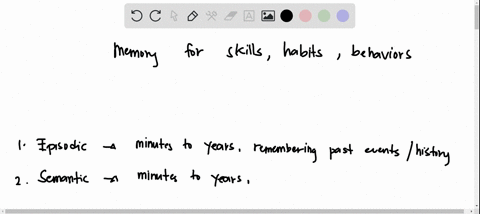 Memory for skills, habits, behaviors
1. Episodic → minutes to years, remembering past events / history
2. Semantic → minutes to years,